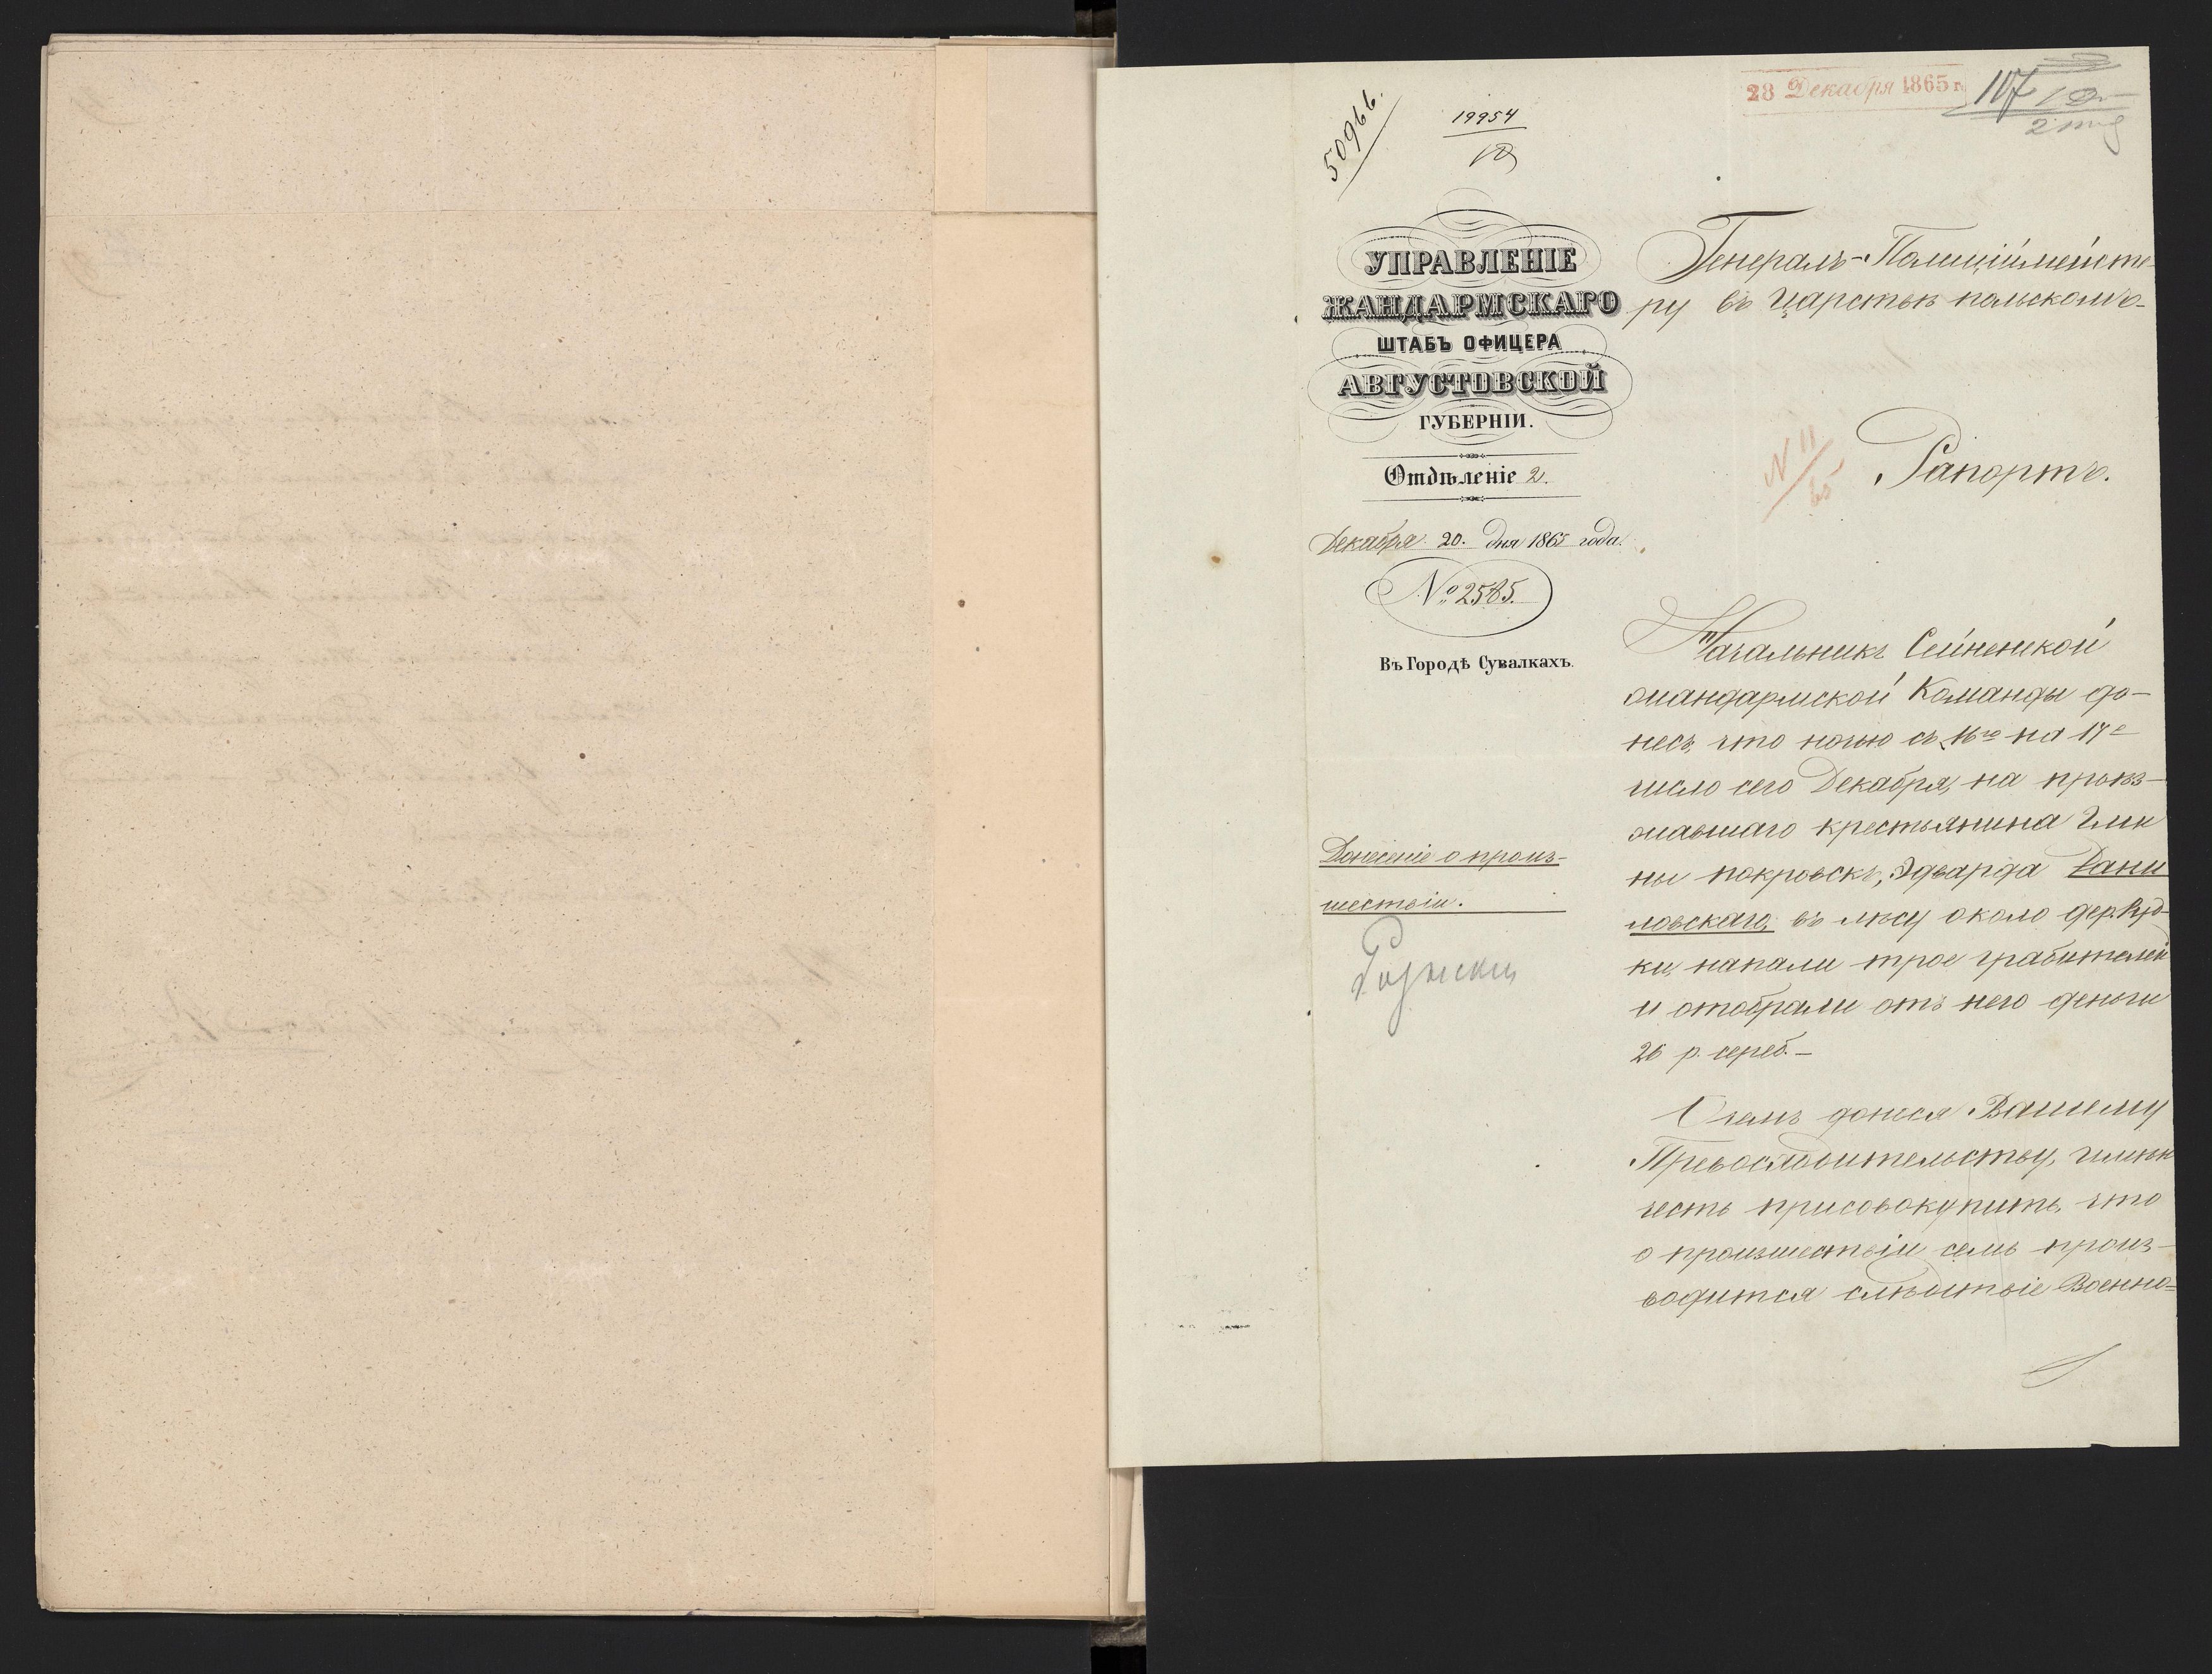 28 Декабря 1865 г.
107
50966.
19954
УПРАВЛЕНІЕ
ЖАНДАРМСКАГО
ШТАБЪ ОФИЦЕРА
АВГУСТОВСКОЙ
ГУБЕРНІИ.
Отдѣленіе 2.
Декабря 20. дня 1865 года.
№ 2585.
Въ Городѣ Сувалкахъ.
Донесеніе о произ-
шествіи.
Генералъ-Полиціймейсте-
ру въ Царствѣ польскомъ
N 11
Рапортъ.
Начальникъ Сейненской
жандармской Команды до-
несъ, что ночью съ 16го на 17е
число сего Декабря, на проѣз-
жавшаго крестьянина Гми
ны покровскъ, Эдварда Дани
ловскаго, въ лѣсу около дер. Руд-
ки, напали трое грабителей
и отобрали отъ него деньги
26 р. сереб.-
О чемъ донося Вашему
Превосходительству, имѣю
честь присовокупить, что
о произшествіи семъ произ-
водится слѣдствіе Военно-